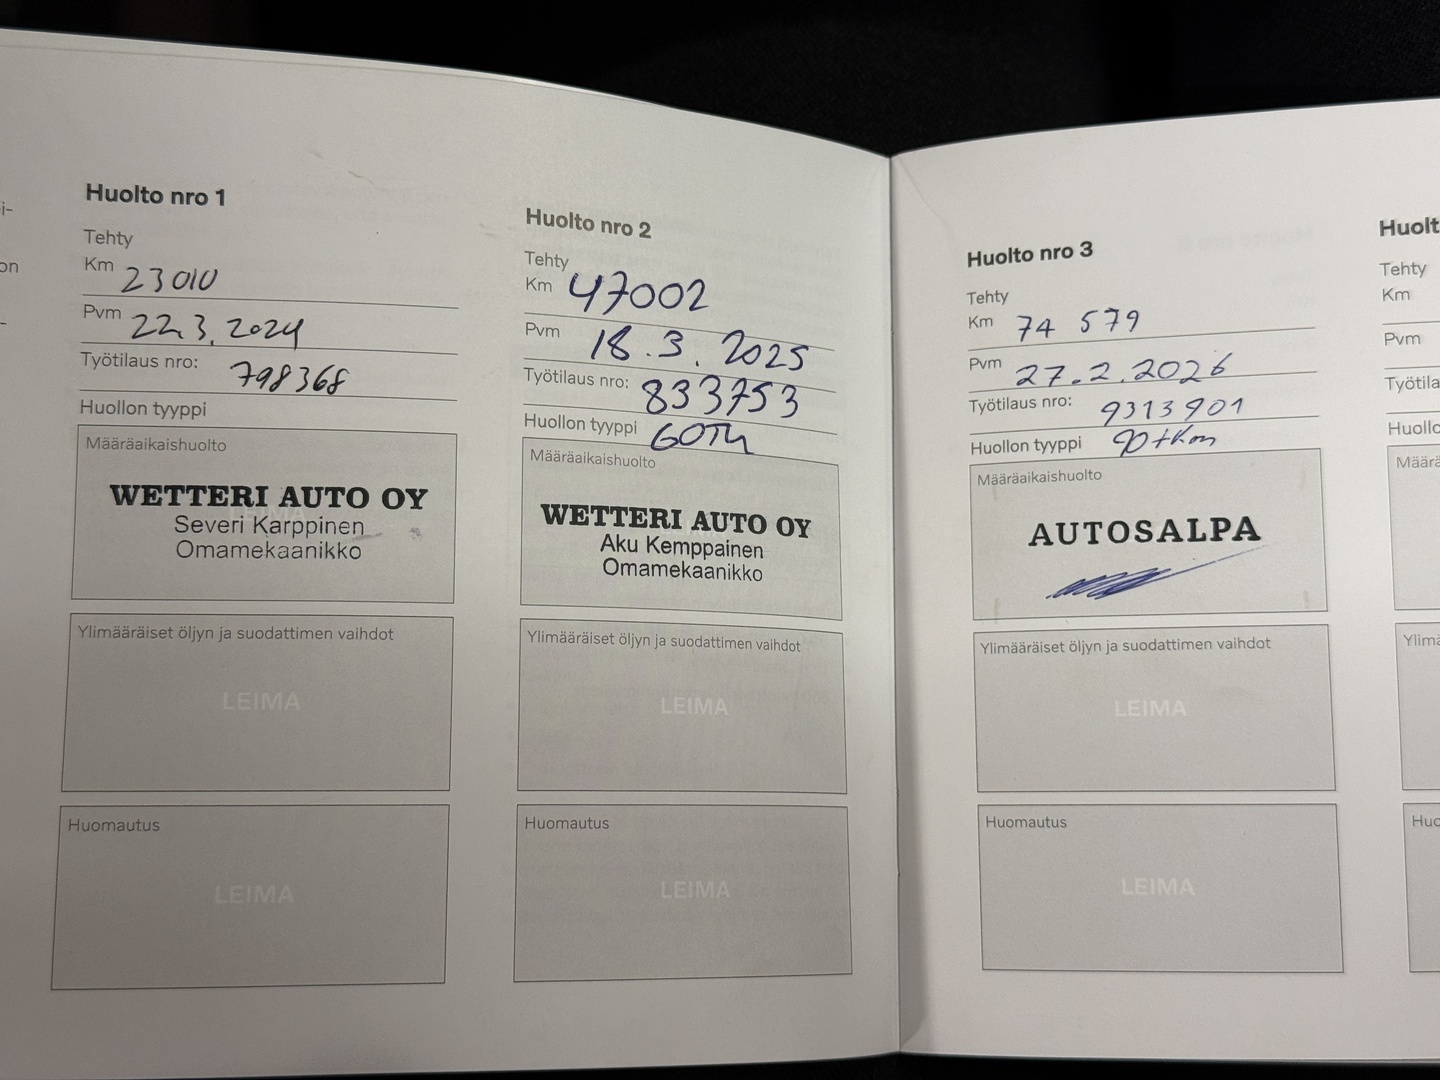 i-
on
-
Huolto nro 1
Tehty
Km 23010
Pvm 22.3.2024
Työtilaus nro: 798368
Huollon tyyppi
Määräaikaishuolto
WETTERI AUTO OY
Severi Karppinen
Omamekaanikko
Ylimääräiset öljyn ja suodattimen vaihdot
LEIMA
Huomautus
LEIMA
Huolto nro 2
Tehty
Km 47002
Pvm 18.3.2025
Työtilaus nro: 833753
Huollon tyyppi 60Tk
Määräaikaishuolto
WETTERI AUTO OY
Aku Kemppainen
Omamekaanikko
Ylimääräiset öljyn ja suodattimen vaihdot
LEIMA
Huomautus
LEIMA
Huolto nro 3
Tehty
Km 74 579
Pvm 27.2.2026
Työtilaus nro: 9313901
Huollon tyyppi 90tkm
Määräaikaishuolto
AUTOSALPA
Ylimääräiset öljyn ja suodattimen vaihdot
LEIMA
Huomautus
LEIMA
Huolt
Tehty
Km
Pvm
Työtila
Huollo
Määrä
Ylimä
Huo